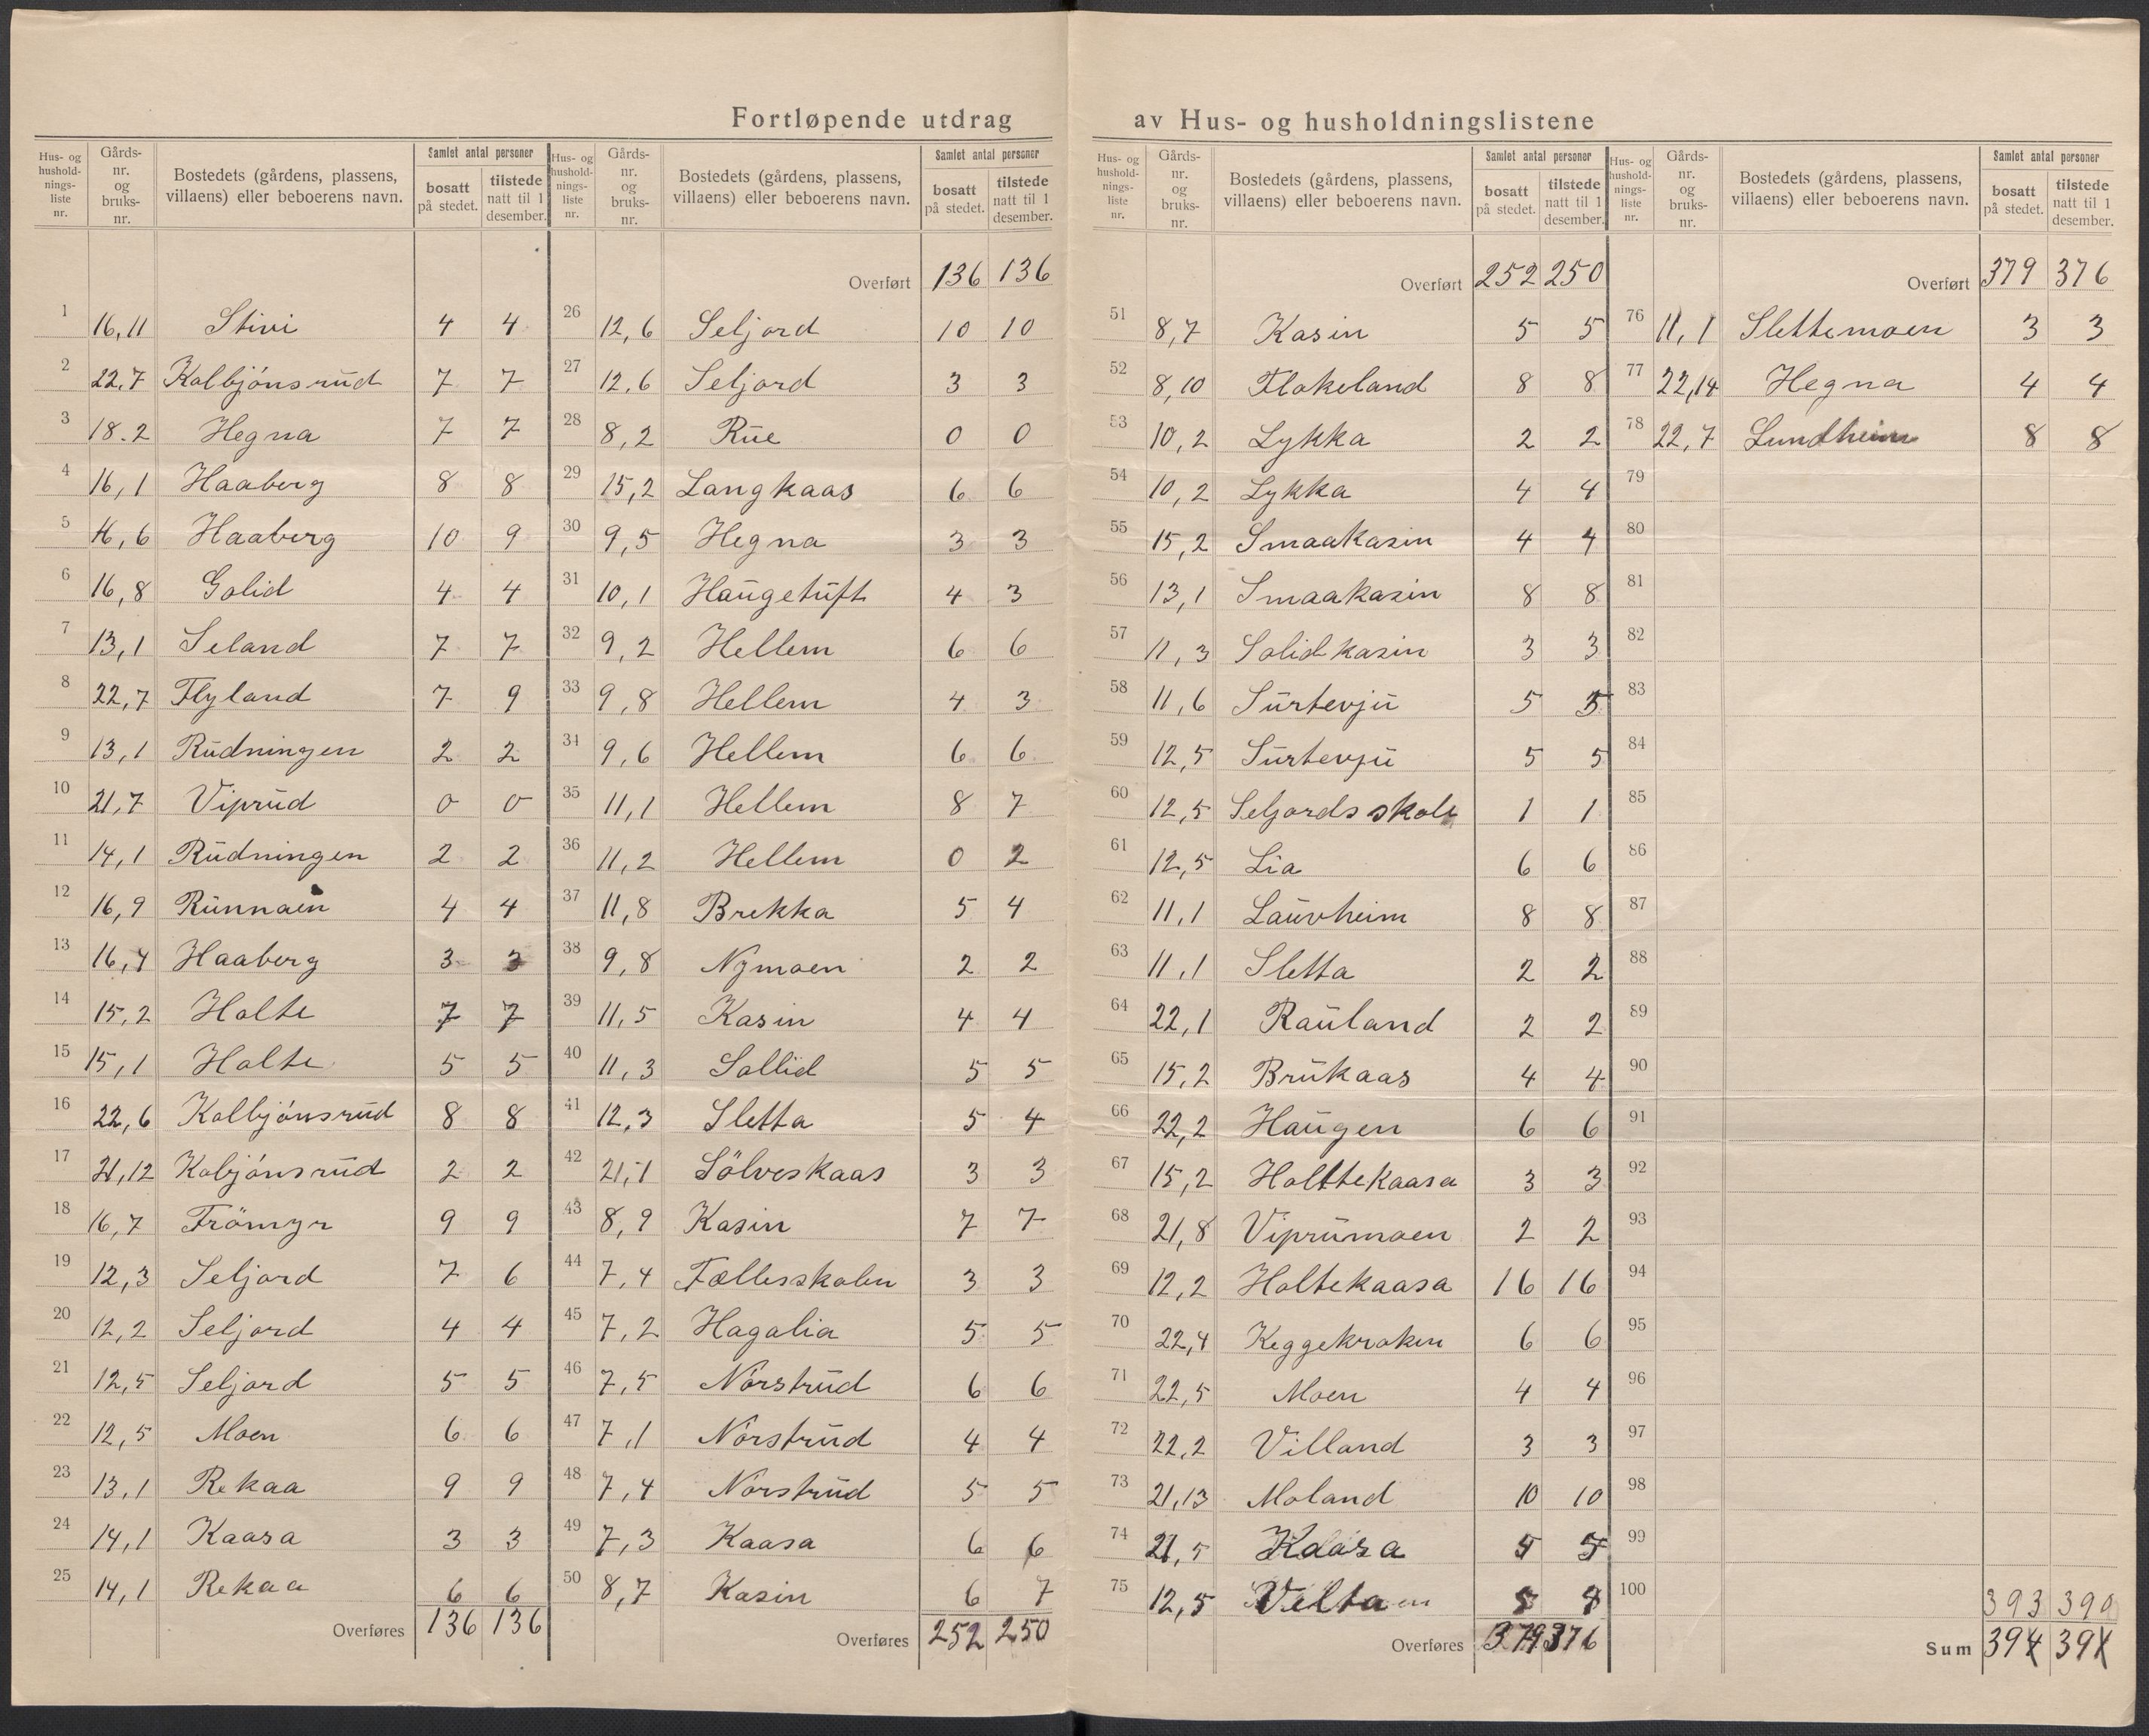 Fortløpende utdrag av Hus- og husholdningslistene
Hus- og husholdnings-liste nr. | Gårds-nr. og bruks-nr. | Bostedets (gårdens, plassens, villaens) eller beboerens navn. | Samlet antal personer | bosatt på stedet. | tilstede natt til 1 desember.
1 16,11 Stivi 4 4
2 22,7 Kolbjónsrud 7 7
3 18.2 Hegna 7 7
4 16,1 Haaberg 8 8
5 16,6 Haaberg 10 9
6 16,8 Golid 4 4
7 13,1 Seland 7 7
8 22,7 Flyland 7 9
9 13,1 Rudningen 2 2
10 21,7 Viprud 0 0
11 14,1 Rudningen 2 2
12 16,9 Runnaen 4 4
13 16,4 Haaberg 3 3
14 15,2 Holte 7 7
15 15,1 Holte 5 5
16 22,6 Kolbjónsrud 8 8
17 21,12 Kobjónsrud 2 2
18 16,7 Frömyr 9 9
19 12,3 Seljord 7 6
20 12,2 Seljord 4 4
21 12,5 Seljord 5 5
22 12,5 Moen 6 6
23 13,1 Rekaa 9 9
24 14,1 Kaasa 3 3
25 14,1 Rekaa 6 6
Overføres 136 136
Hus- og husholdnings-liste nr. | Gårds-nr. og bruks-nr. | Bostedets (gårdens, plassens, villaens) eller beboerens navn. | Samlet antal personer | bosatt på stedet. | tilstede natt til 1 desember.
Overført 136 136
26 12,6 Seljord 10 10
27 12,6 Seljord 3 3
28 8,2 Rue 0 0
29 15,2 Langkaas 6 6
30 9,5 Hegna 3 3
31 10,1 Haugetuft 4 3
32 9,2 Hellem 6 6
33 9,8 Hellem 4 3
34 9,6 Hellem 6 6
35 11,1 Hellem 8 7
36 11,2 Hellem 0 2
37 11,8 Brekka 5 4
38 9,8 Nymoen 2 2
39 11,5 Kasin 4 4
40 11,3 Sollid 5 5
41 12,3 Sletta 5 4
42 21,1 Sölveskaas 3 3
43 8,9 Kasin 7 7
44 7,4 Fællesskolen 3 3
45 7,2 Hagalia 5 5
46 7,5 Nórstrud 6 6
47 7,1 Nórstrud 4 4
48 7,4 Nórstrud 5 5
49 7,3 Kaasa 6 6
50 8,7 Kasin 6 7
Overføres 252 250
Hus- og husholdnings-liste nr. | Gårds-nr. og bruks-nr. | Bostedets (gårdens, plassens, villaens) eller beboerens navn. | Samlet antal personer | bosatt på stedet. | tilstede natt til 1 desember.
Overført 252 250
51 8,7 Kasin 5 5
52 8,10 Flokeland 8 8
53 10,2 Lykka 2 2
54 10,2 Lykka 4 4
55 15,2 Smaakasin 4 4
56 13,1 Smaakasin 8 8
57 11,3 Solidkasin 3 3
58 11,6 Surtevju 5 5
59 12,5 Surtevju 5 5
60 12,5 Seljords skole 1 1
61 12,5 Lia 6 6
62 11,1 Lauvheim 8 8
63 11,1 Sletta 2 2
64 22,1 Rauland 2 2
65 15,2 Brukaas 4 4
66 22,2 Haugen 6 6
67 15,2 Holttekaasa 3 3
68 21,8 Viprumoen 2 2
69 12,2 Holtekaasa 16 16
70 22,4 Keggekroken 6 6
71 22,5 Moen 4 4
72 22,2 Villand 3 3
73 21,13 Moland 10 10
74 21,5 Kaasa 5 5
75 12,5 Velta
Overføres 379 376
Hus- og husholdnings-liste nr. | Gårds-nr. og bruks-nr. | Bostedets (gårdens, plassens, villaens) eller beboerens navn. | Samlet antal personer | bosatt på stedet. | tilstede natt til 1 desember.
Overført 379 376
76 11,1 Slettemoen 3 3
77 22,14 Hegna 4 4
78 22,7 Lundheim 8 8
79
80
81
82
83
84
85
86
87
88
89
90
91
92
93
94
95
96
97
98
99
100
393 390
Sum